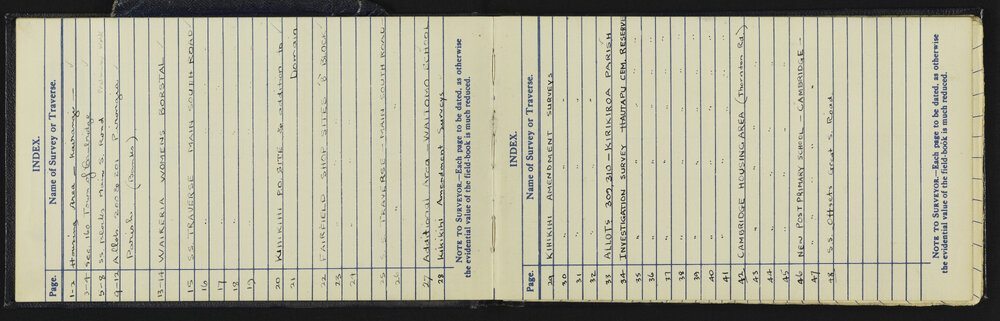 INDEX.
Page. Name of Survey or Traverse.
1-2 Housing Area —
3-4 Sec 160 Town of Cambridge
5-8 SS Main S. Road
9-12 Allots 200 & 201
Parish (Banks)
13-14 WAIKERIA WOMENS BORSTAL
15 S.S. TRAVERSE MAIN SOUTH ROAD
16 " "
17 " "
18 "
19
20 KIHIKIHI P.O. SITE & addition to
21 Domain
22 FAIRFIELD SHOP SITES & BLOCK
23 " "
24 "
25 S.S. TRAVERSE — MAIN SOUTH ROAD
26 "
27 Additional Area — WAITOMO SCHOOL
28 Kihikihi Amendment Surveys
NOTE TO SURVEYOR.—Each page to be dated, as otherwise
the evidential value of the field-book is much reduced.
INDEX.
Page. Name of Survey or Traverse.
29 KIHIKIHI AMENDMENT SURVEYS
30 " " "
31 " " "
32 " " "
33 ALLOTS 309, 310 — KIRIKIRIROA PARISH
34 INVESTIGATION SURVEY HAUTAPU CEM. RESERVE
35 " " "
36 " " "
37 " " "
38 " " "
39 " " "
40 " " "
41 " " "
42 CAMBRIDGE HOUSING AREA (Thornton Rd)
43 " " "
44 " " "
45 " " "
46 NEW POST PRIMARY SCHOOL — CAMBRIDGE —
47 " " "
48 S.S. Offsets Great S. Road
NOTE TO SURVEYOR.—Each page to be dated, as otherwise
the evidential value of the field-book is much reduced.